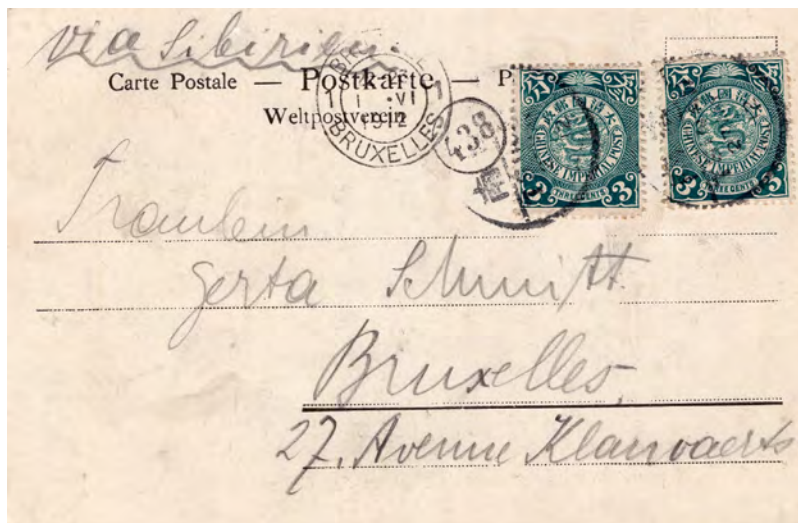 via Sibirien.
Carte Postale — Postkarte — P
Weltpostverein
1 VI
1912
BRUXELLES
438
CHINESE IMPERIAL POST
3 THREE CENTS 3
CHINESE IMPERIAL POST
3 THREE CENTS 3
Fraulein
Gerta Schmitt.
Bruxelles,
27, Avenue Klauwaerts